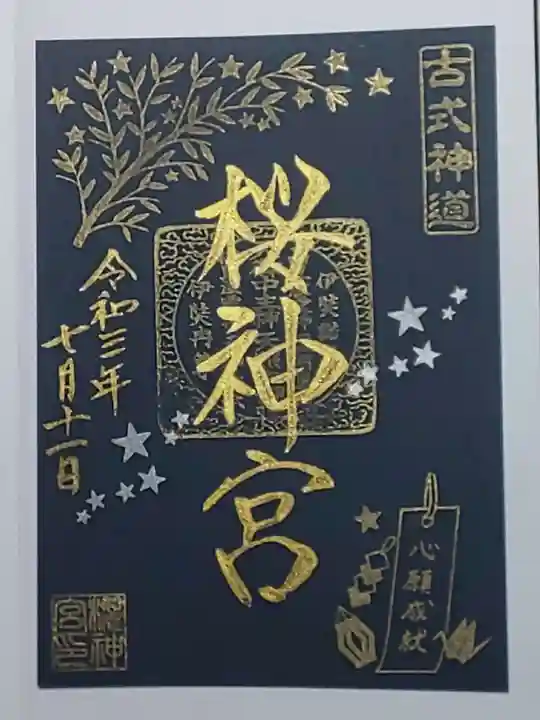 古式神道
桜神宮
令和三年
七月十一日
心願成就
櫻神
宮印